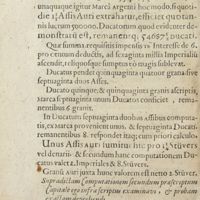 unaquaque igitur Marca argenti hoc modo, si quoti-
die 1 Assis Auri extrahatur, efficiet quotan-
nis lucrum 500000. Ducatorum quod evidenter de-
monstrari est, remanentque 54067 Ducati.
Quæ summa requisitis impensis ut Interesse 6. pro
pro centinum deductis, ad sexaginta millia Imperialia
ascendet, reliquosque sumptus 10 magis sublevat.
Ducatus pendet quinquaginta quatuor grana sive
septuaginta duos Asses.
Ducato quinque, & quinquaginta granis ascriptis,
Marca septuaginta unum Ducatos conficiet, rema-
nentibus 6 granis.
In Ducatum septuaginta duobus Assibus computa-
tis, ex Marca provenient unus, & septuaginta Ducati,
remanentibus 8. refpondet itaq; cum priori calculo.
Unus Assis auri sumitur hic pro 1 Stüvers
vel denariis & secundum hanc computationem Du-
catus valet 2. Imperiales & 8. Stüvers.
Granis Auri juxta hunc valorem est netto 2 Stüver.
Supradictam Computationem secundum præscriptum
Capitale ego infra scriptus examinavi, & probam